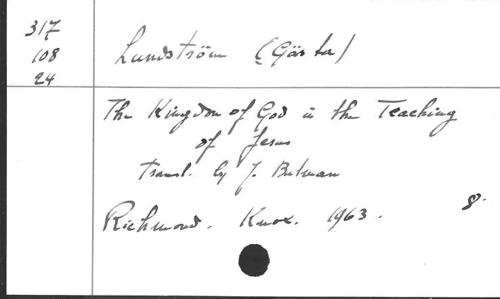 317
108
24
Lundström (Gösta)
The Kingdom of God in the Teaching
of Jesus
transl. by J. Bulman
Richmond. Knox. 1963. 8°